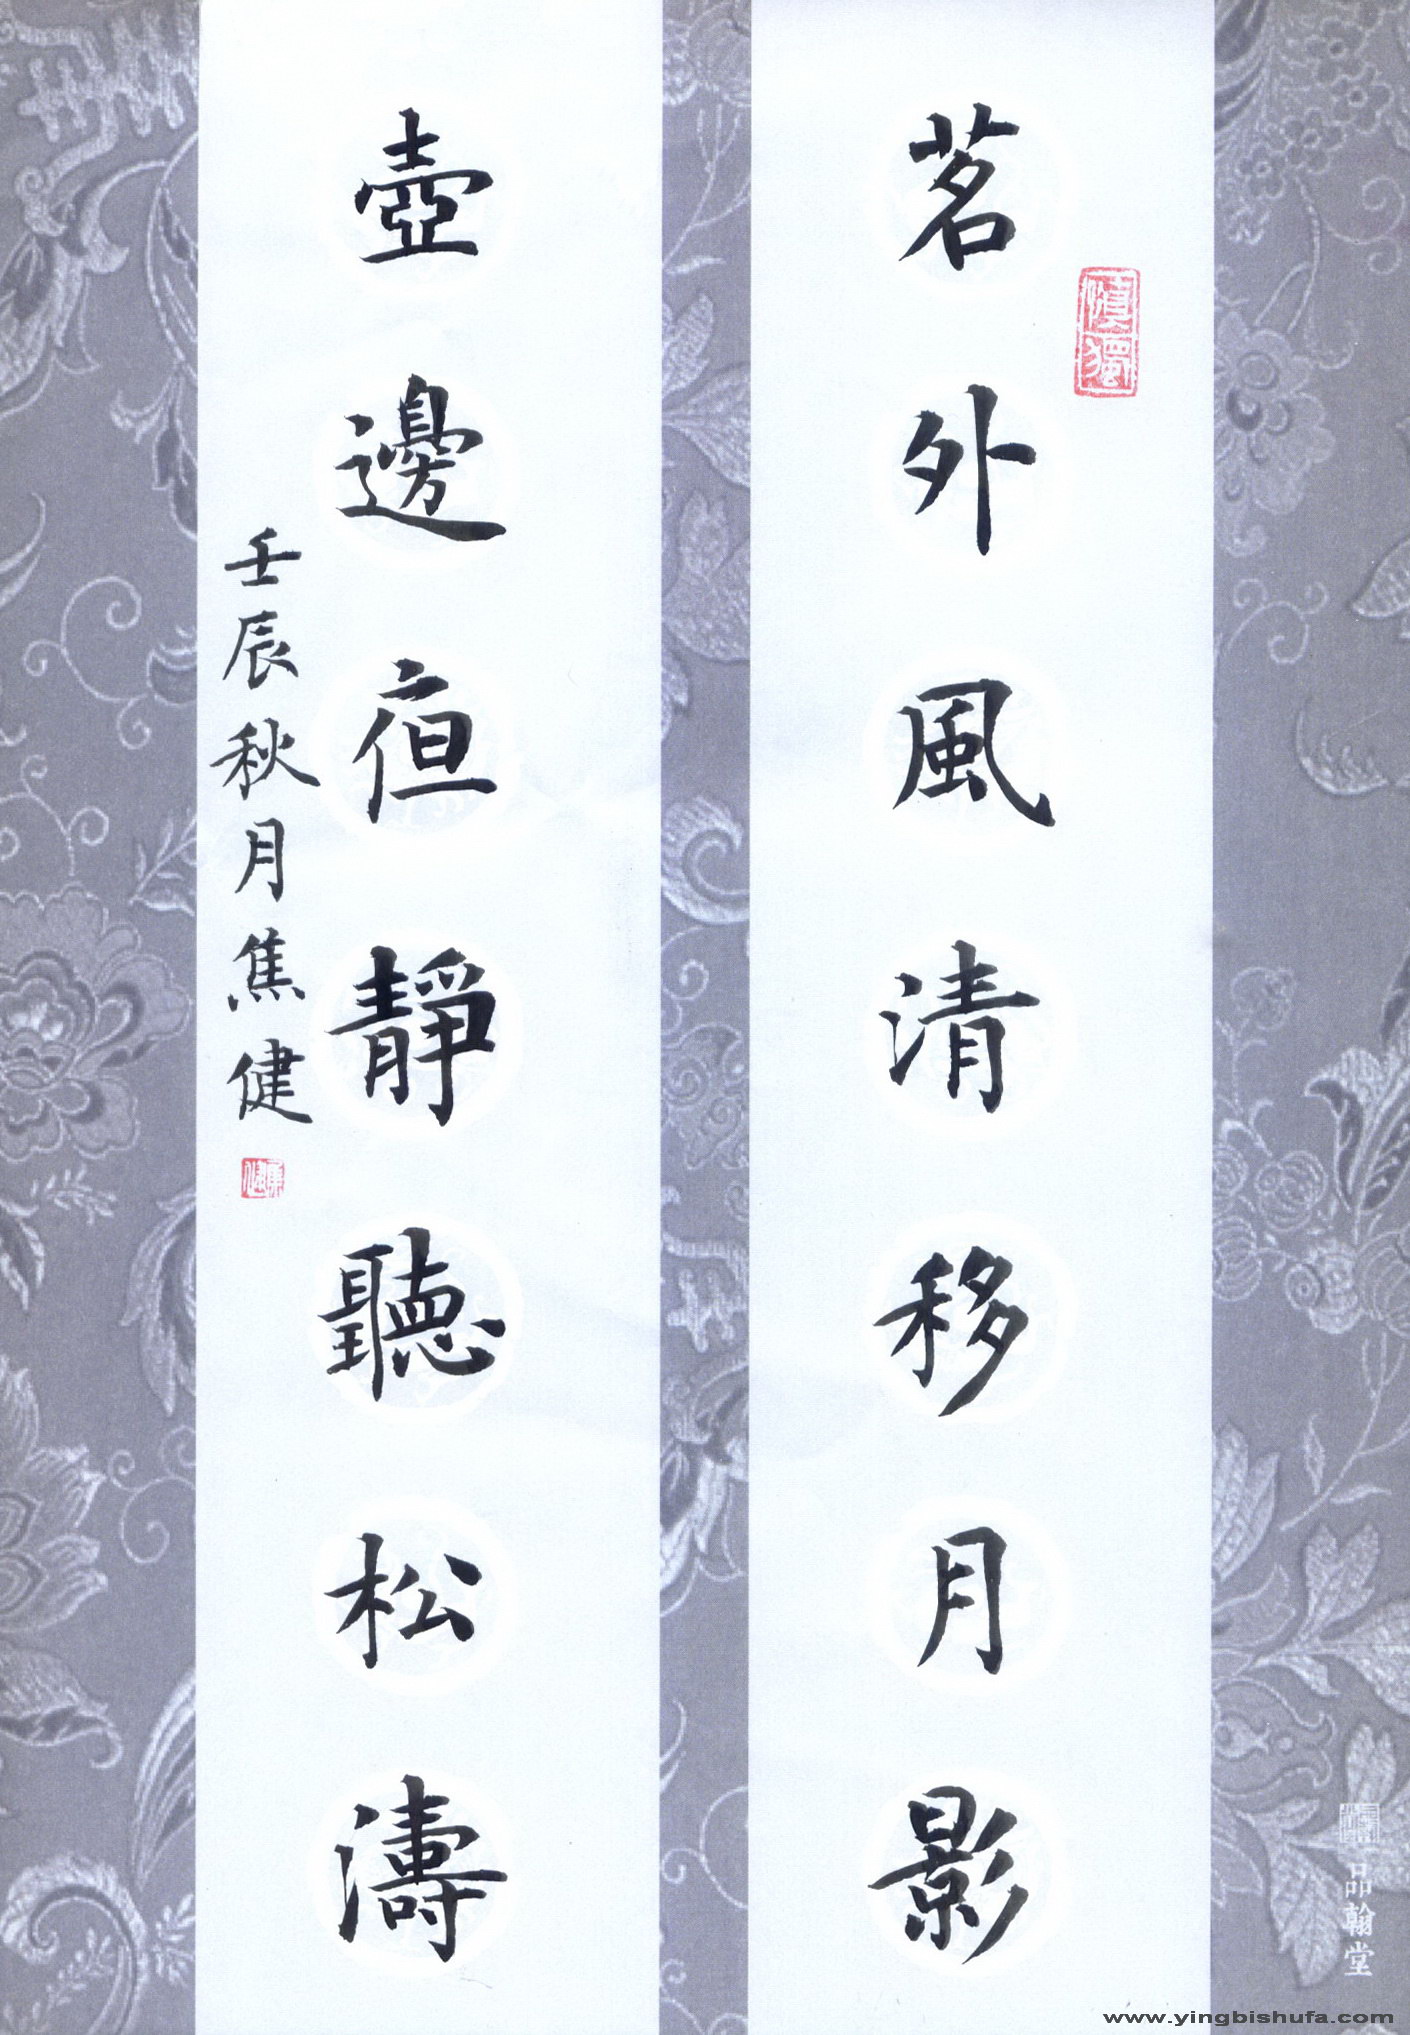 茗外風清移月影
慎獨
壺邊亱靜聽松濤
壬辰秋月焦健
焦健
品翰堂
www.yingbishufa.com